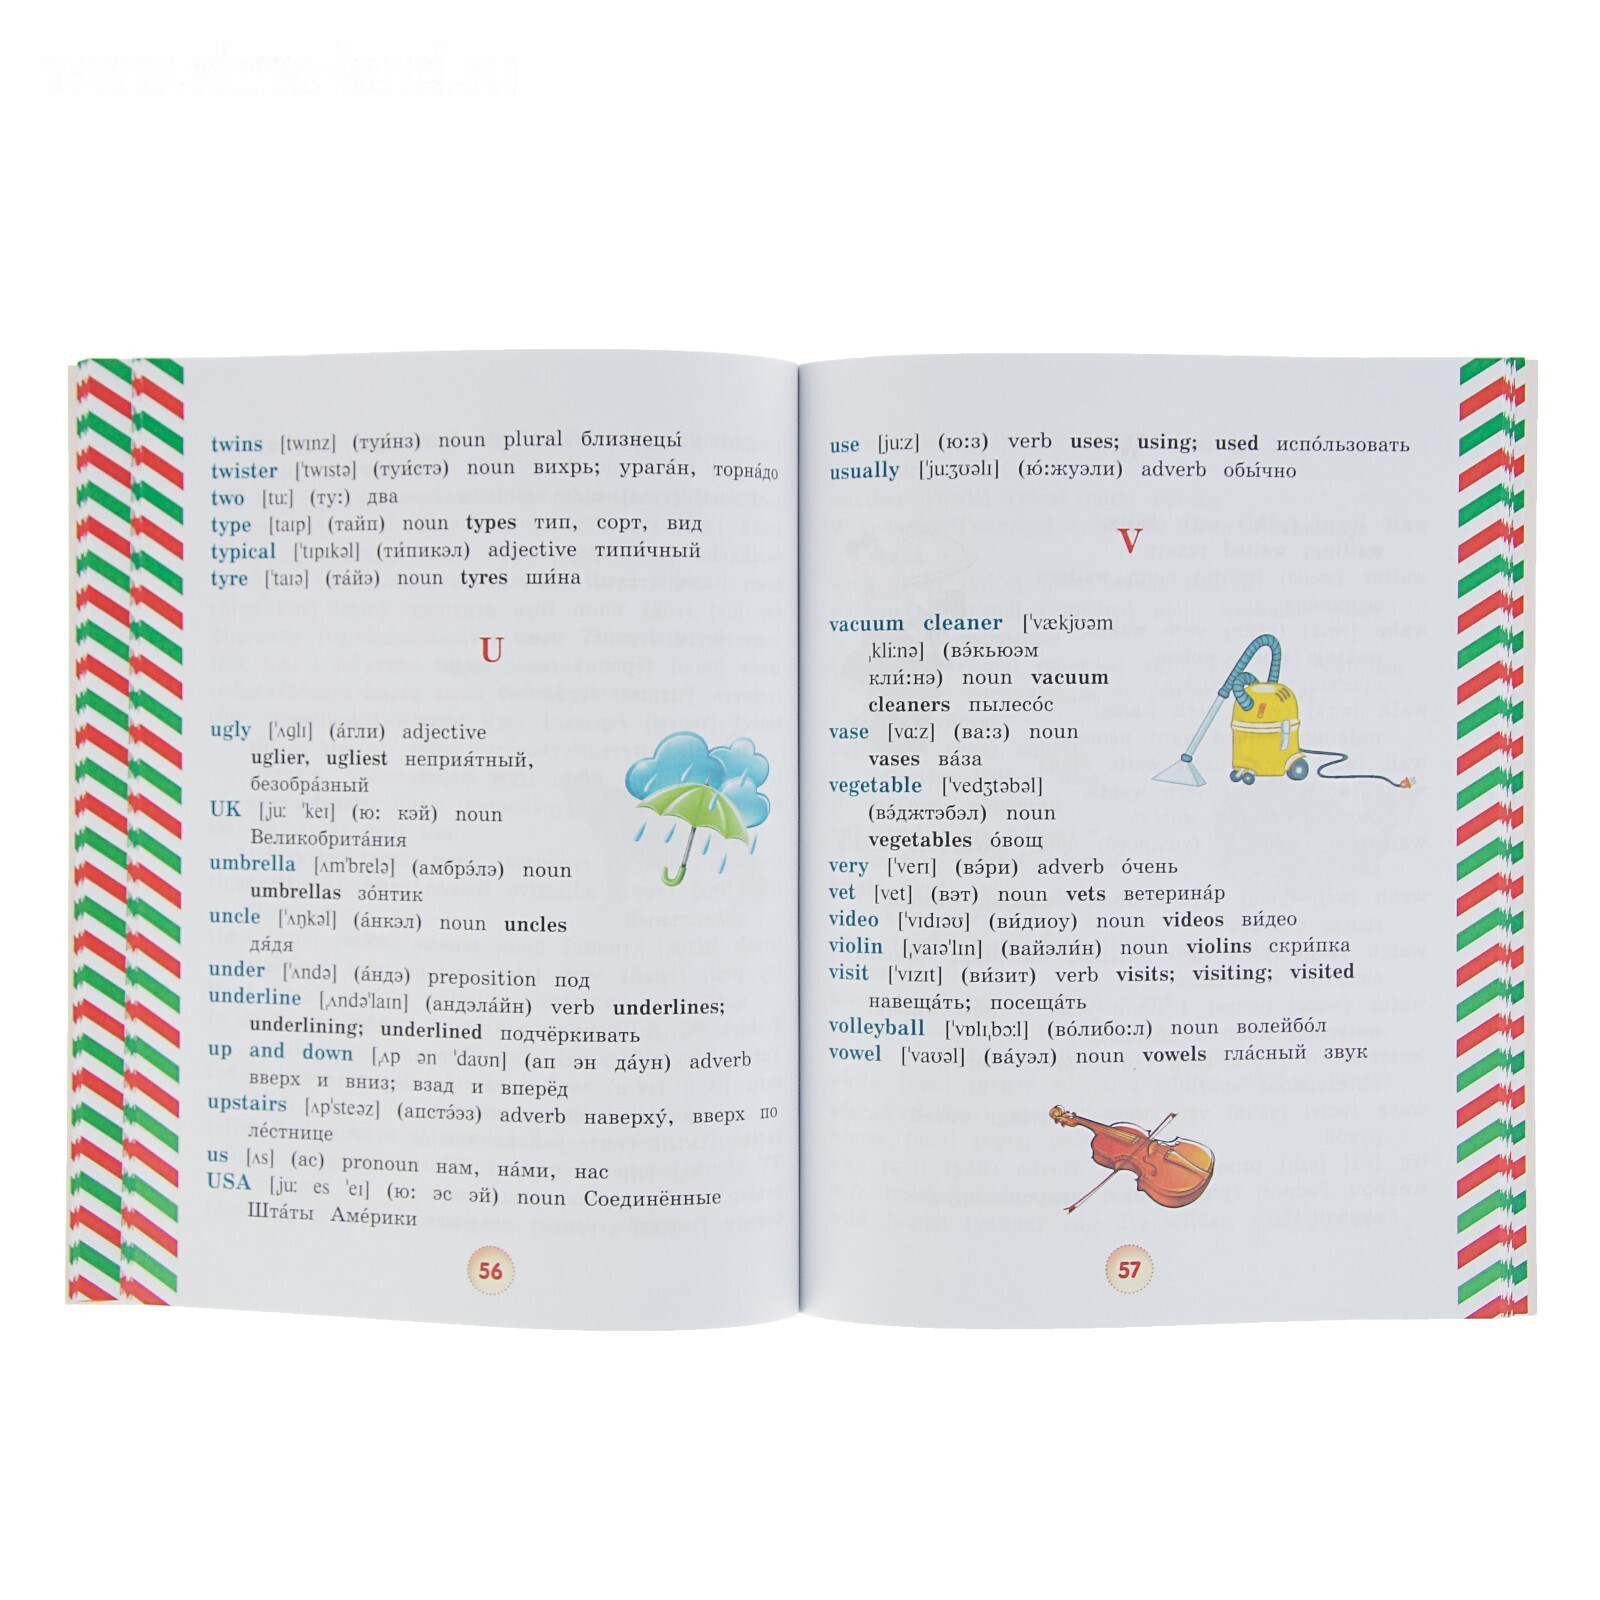 twins [twɪnz] (туи́нз) noun plural близнецы́
twister [ˈtwɪstə] (туи́стэ) noun вихрь; урага́н, торна́до
two [tuː] (ту:) два
type [taɪp] (тайп) noun types тип, сорт, вид
typical [ˈtɪpɪkəl] (ти́пикэл) adjective типи́чный
tyre [ˈtaɪə] (та́йэ) noun tyres ши́на
U
ugly [ˈʌɡlɪ] (а́гли) adjective
uglier, ugliest неприя́тный,
безобра́зный
UK [ˌjuː ˈkeɪ] (ю: кэй) noun
Великобрита́ния
umbrella [ʌmˈbrelə] (амбрэ́лэ) noun
umbrellas зо́нтик
uncle [ˈʌŋkəl] (а́нкэл) noun uncles
дя́дя
under [ˈʌndə] (а́ндэ) preposition под
underline [ˌʌndəˈlaɪn] (андэла́йн) verb underlines;
underlining; underlined подчёркивать
up and down [ˌʌp ən ˈdaʊn] (ап эн да́ун) adverb
вверх и вниз; взад и вперёд
upstairs [ʌpˈsteəz] (апстэ́эз) adverb наверху́, вверх по
ле́стнице
us [ʌs] (ас) pronoun нам, на́ми, нас
USA [ˌjuː es ˈeɪ] (ю: эс эй) noun Соединённые
Шта́ты Аме́рики
56
use [juːz] (ю:з) verb uses; using; used испо́льзовать
usually [ˈjuːʒʊəlɪ] (ю́:жуэли) adverb обы́чно
V
vacuum cleaner [ˈvækjʊəm
ˌkliːnə] (вэ́кьюэм
кли́:нэ) noun vacuum
cleaners пылесо́с
vase [vɑːz] (ва:з) noun
vases ва́за
vegetable [ˈvedʒtəbəl]
(вэ́джтэбэл) noun
vegetables о́вощ
very [ˈverɪ] (вэ́ри) adverb о́чень
vet [vet] (вэт) noun vets ветерина́р
video [ˈvɪdɪəʊ] (ви́диоу) noun videos ви́део
violin [ˌvaɪəˈlɪn] (вайэли́н) noun violins скри́пка
visit [ˈvɪzɪt] (ви́зит) verb visits; visiting; visited
навеща́ть; посеща́ть
volleyball [ˈvɒlɪˌbɔːl] (во́либо:л) noun волейбо́л
vowel [ˈvaʊəl] (ва́уэл) noun vowels гла́сный звук
57